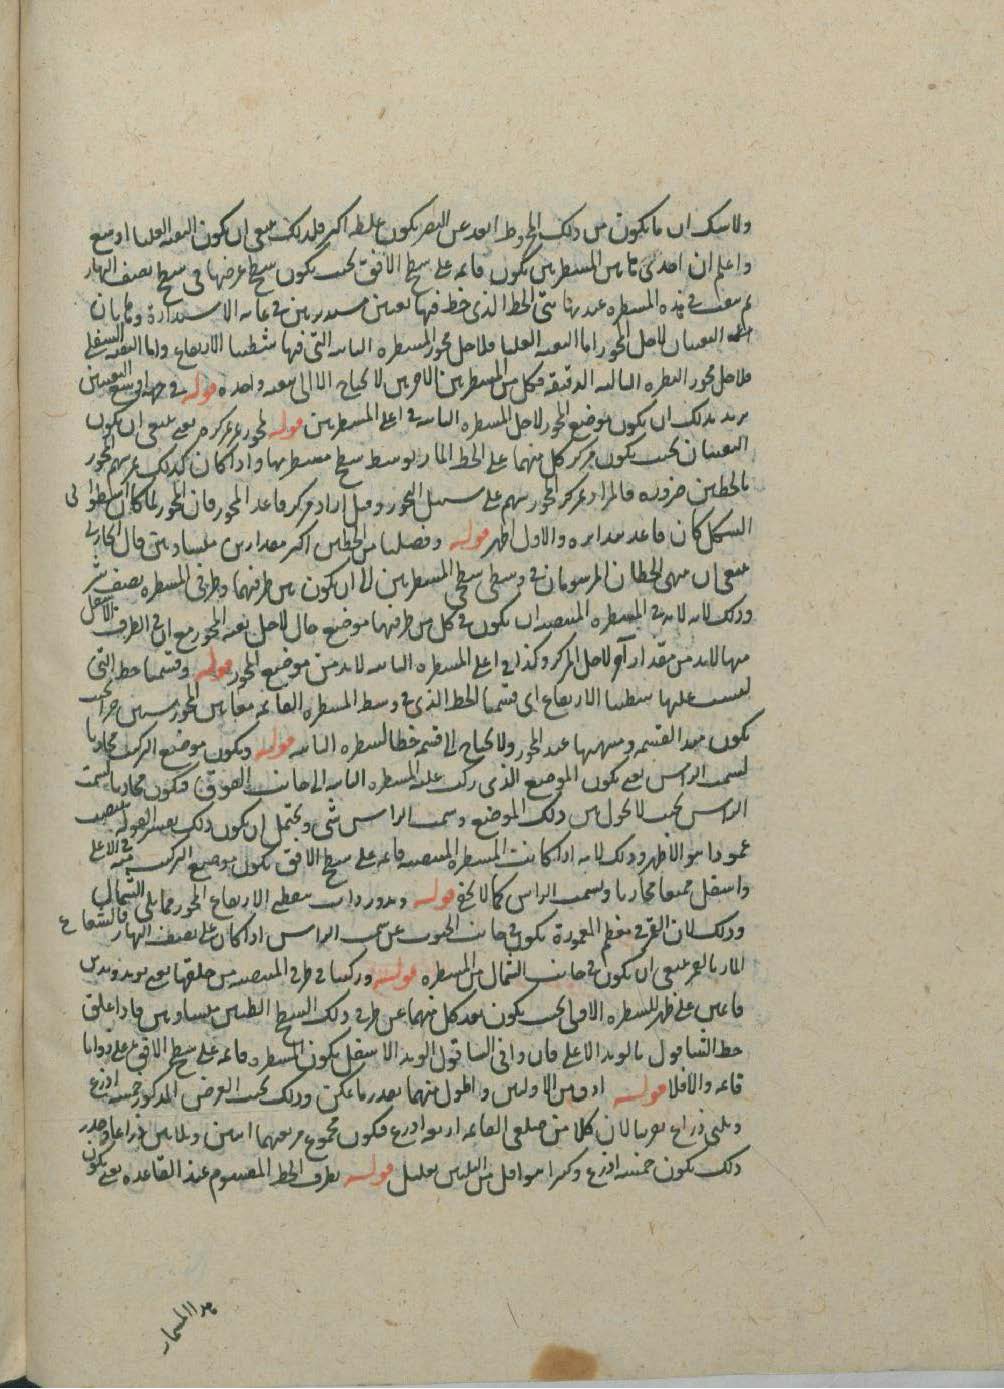 ولا شك ان ما يكون من ذلك المخروط ابعد عن البصر يكون غلظه اكبر فلذلك ينبغى ان يكون الثقبه العليا اوسع
واعلم ان احدى هاتين المسطرتين يكون قائمه على سطح الافق بحيث يكون سطح عرضها فى سطح نصف النهار
ثم نثقب فى هذه المسطره عند نهايتى الخط الذى خط فيها ثقبين مستديرين فى غايه الاستدارة وهما
الثقبتان لاجل المحور اما الثقبه العليا فلاجل محور المسطره الثانيه التى فيها شظيتا الارتفاع واما الثقبه السفلى
فلاجل محور المسطره الثالثه الدقيقه فكل من المسطرتين الاخريين لا يحتاج الا الى ثقبه واحده قوله فى جهه اوسع الثقبتين
يريد بذلك ان يكون موضع المحور لاجل المسطره الثانيه فى اعلى المسطرتين قوله لمحور مركز يعنى ينبغى ان يكون
الثقبتان بحيث يكون مركز كل منهما على الخط المار بوسط سطح مسطرتها واذا كان كذلك مر سهم المحور
بالخطين ضروره فالمراد بمركز المحور سهم على سبيل التجوز وقيل اراد مركز قاعده المحور فان المحور لما كان اسطوانى
الشكل كان قاعدته دايره والاول اظهر قوله وفصلنا من الخطين اكبر مقدارين متساويين قال الشارح
ينبغى ان ينتهى الخطان المرسومان فى وسطى سطحى المسطرتين الى ان يكون بين طرفيهما وطرفى المسطره نصف شبر
وذلك لانه لابد فى المسطره المنتصبه ان يكون فى كل من طرفيها موضع خال لاجل ثقبه المحور مع ان فى الطرف الاسفل
منها لابد من مقدار آخر لاجل المركز وكذا فى اعلى المسطره الثانيه لابد من موضع المحور قوله وقسمنا خط التى
ليست عليها شظيتا الارتفاع اى قسمنا الخط الذى فى وسط المسطره القائمه مما بين المحورين بستين جزءا بحيث
يكون مبدا القسمه ومنتهاها عند المحور ولا يحتاج الى قسم خط المسطره الثانيه قوله ويكون موضع التركيب محاذيا
لسمت الراس يعنى يكون الموضع الذى ركب عليه المسطره الثانيه الى جانب الفوق فيكون محاذيا لسمت
الراس بحيث لا يحول بين ذلك الموضع وسمت الراس شى ويحتمل ان يكون ذلك تفسيرا لقوله تنصب
عمودا هو الاظهر وذلك لانه اذا كانت المسطره المنتصبه قائمه على سطح الافق يكون موضع التركيب فى الاعلى
واسفل جميعا محاذيا لسمت الراس كما لا يخفى قوله ويدور ذات شظيتى الارتفاع المحور مما يلى الشمال
وذلك لان القمر فى معظم المعمورة يكون فى جانب الجنوب عن سمت الراس اذا كان على نصف النهار فالشعاع
المار بالقمر ينبغى ان يكون فى جانب الشمال من المسطره قوله وركبنا فى طرفى المنتصبه من خلفها يعنى نريد وتدين
قائمين على ظهر المسطره الاولى بحيث يكون بعد كل منهما عن طرفى ذلك السطح الطينين متساويين فاذا علق
خط الشاقول بالوتد الاعلى فان وافى الشاقول الوتد الاسفل يكون المسطره قائمه على سطح الافق على زوايا
قائمه والا فلا قوله ادق من الاوليين واطول منهما بقدر ما يمكن وذلك بحسب الغرض المذكور خمسه اذرع
وثلثى ذراع تقريبا لان كلا من ضلعى القائمه اربعه اذرع فيكون مجموع مربعيهما اثنين وثلاثين ذراعا وجذر
ذلك يكون خمسه اذرع وكسرا هو اقل من الثلثين بقليل قوله بطرف الخط المقسوم عند القاعده يعنى يكون
هذا المسمار